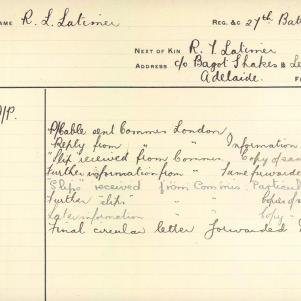 NAME R. L. Latimer REG. &C 27th Bat
NEXT OF KIN R. T. Latimer
ADDRESS c/o Bagot Shakes & Le
Adelaide.
Cable sent Commns London
Reply from " " Information
"Slip" received from Commns. Copy of
Further information from " Same forwarde
"Slips" received from Commns. Particul
Further "slips" " " copies of
Later information " " copy "
Final circular letter forwarded